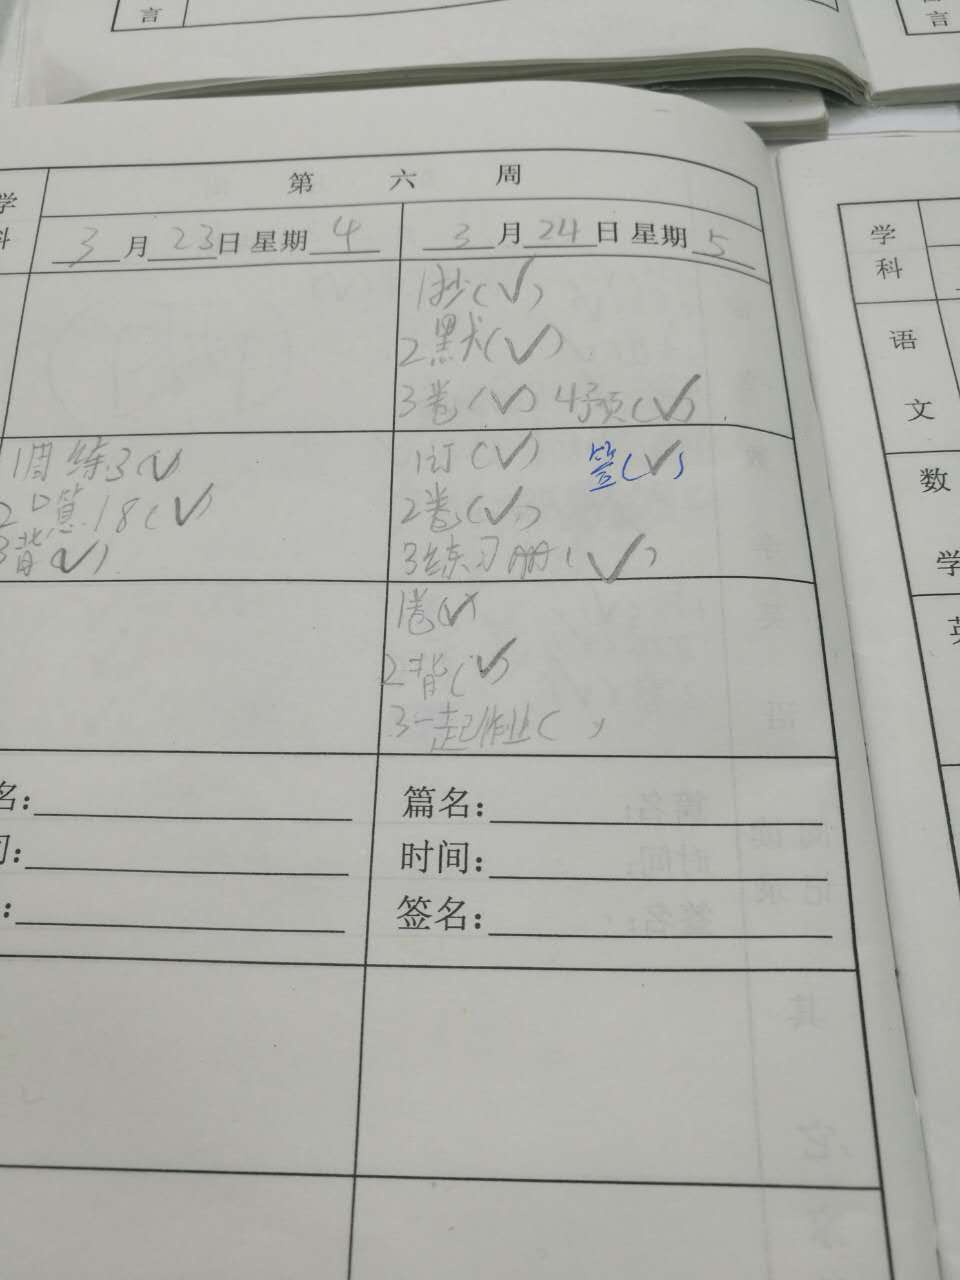 言
言
学
科
第 六 周
3月23日 星期4
3月24日 星期5
1抄(✓)
2黑犬(✓)
3卷(✓) 4预(✓)
1周练3(✓)
2口算18(✓)
3背(✓)
1订(✓) 签(✓)
2卷(✓)
3练习册(✓)
1卷(✓)
2背(✓)
3一起作业( )
名:
间:
:
篇名:
时间:
签名:
学
科
语
文
数
学
英